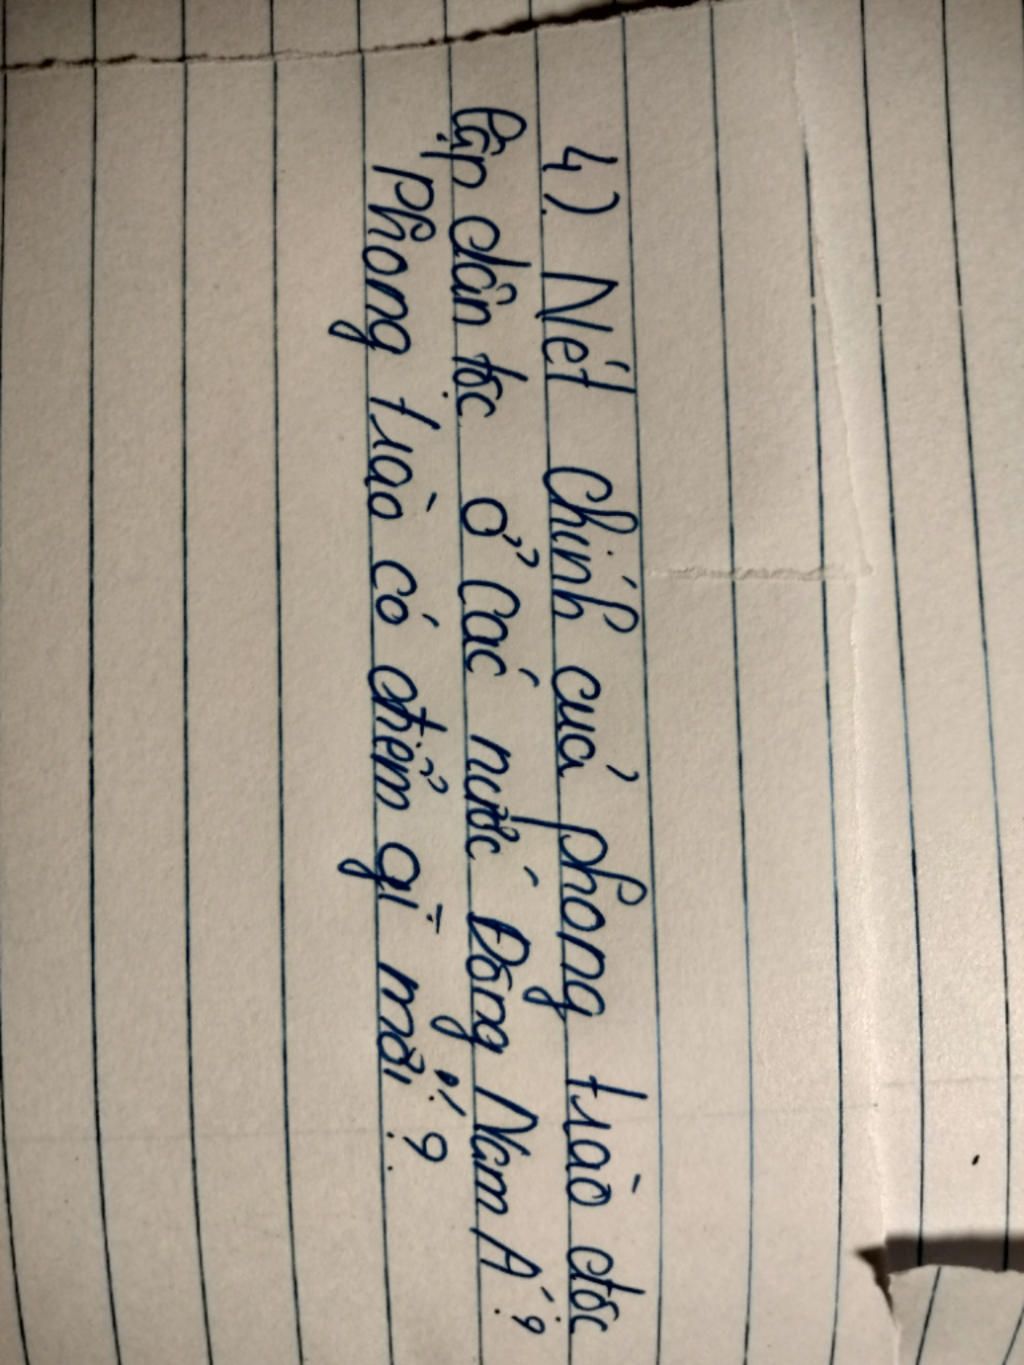 4). Nét chính của phong trào độc
lập dân tộc ở các nước Đông Nam Á?
Phong trào có điểm gì mới?